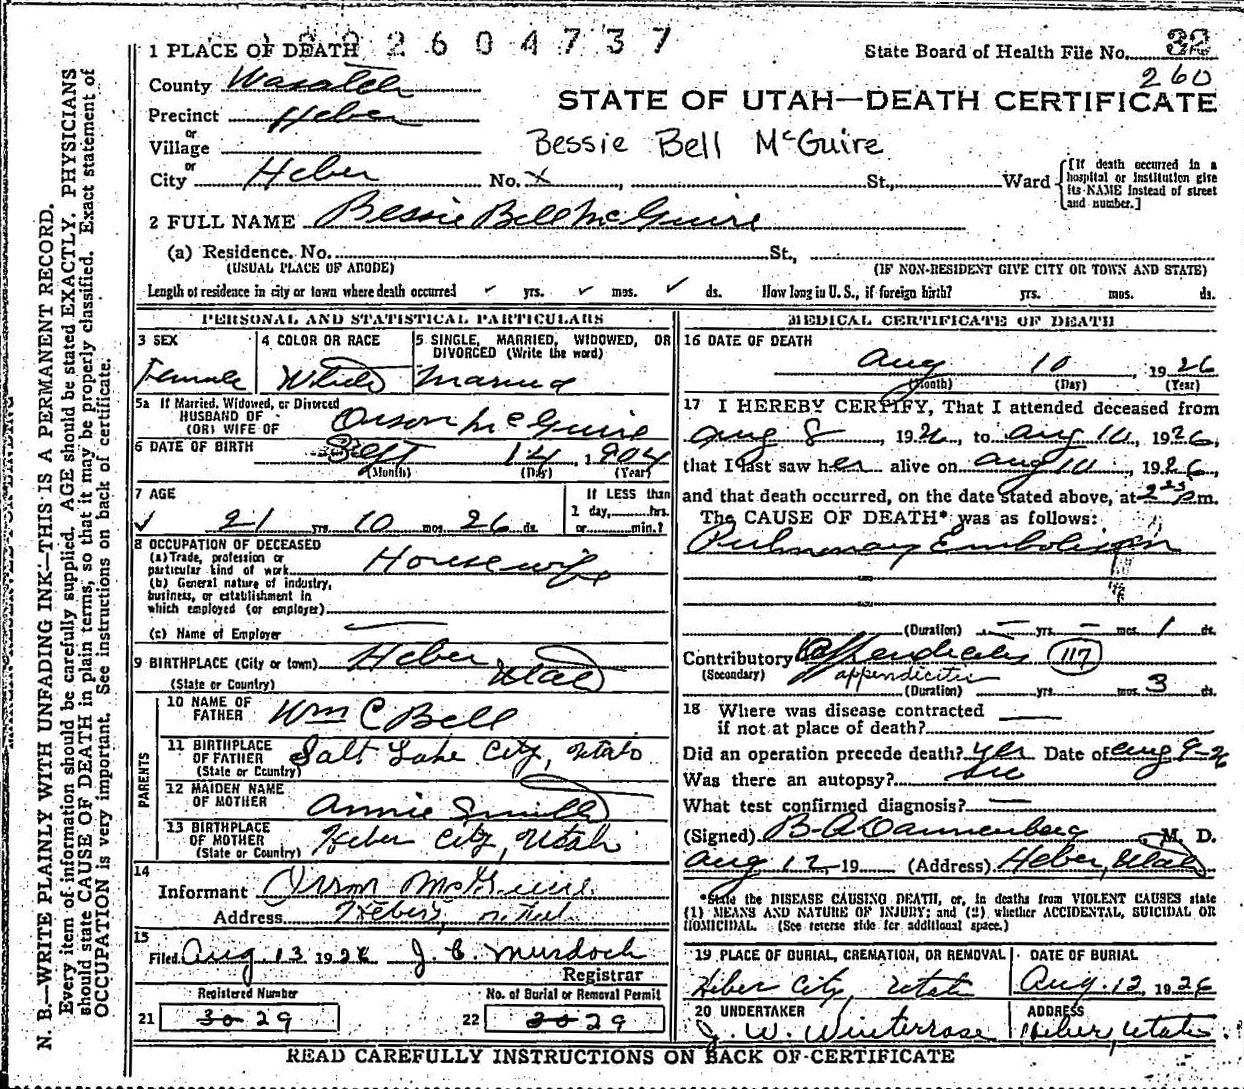 2604737
1 PLACE OF DEATH
State Board of Health File No. 32
260
County Wasatch
STATE OF UTAH—DEATH CERTIFICATE
Precinct Heber
or
Village
Bessie Bell McGuire
or
City Heber No. x , St., Ward
[If death occurred in a hospital or institution give its NAME instead of street and number.]
2 FULL NAME Bessie Bell McGuire
(a) Residence. No. St.,
(USUAL PLACE OF ABODE) (IF NON-RESIDENT GIVE CITY OR TOWN AND STATE)
Length of residence in city or town where death occurred ✓ yrs. ✓ mos. ✓ ds. How long in U. S., if foreign birth? yrs. mos. ds.
PERSONAL AND STATISTICAL PARTICULARS
3 SEX
Female
4 COLOR OR RACE
White
5 SINGLE, MARRIED, WIDOWED, OR
DIVORCED (Write the word)
Married
5a If Married, Widowed, or Divorced
HUSBAND OF
(OR) WIFE OF Orson McGuire
6 DATE OF BIRTH Sept 14, 1904
(Month) (Day) (Year)
7 AGE
✓ 21 yrs. 10 mos. 26 ds.
If LESS than
1 day, hrs.
or min.?
8 OCCUPATION OF DECEASED
(a) Trade, profession or
particular kind of work Housewife
(b) General nature of industry,
business, or establishment in
which employed (or employer)
(c) Name of Employer
9 BIRTHPLACE (City or town) Heber
(State or Country) Utah
PARENTS
10 NAME OF
FATHER Wm C Bell
11 BIRTHPLACE
OF FATHER Salt Lake City, Utah
(State or Country)
12 MAIDEN NAME
OF MOTHER Annie Smith
13 BIRTHPLACE
OF MOTHER Heber City, Utah
(State or Country)
14
Informant Orson McGuire
Address Heber, Utah
15
Filed Aug 13 1926 J. C. Murdoch
Registrar
Registered Number
21 30 29
No. of Burial or Removal Permit
22 30 29
MEDICAL CERTIFICATE OF DEATH
16 DATE OF DEATH
Aug 10, 1926
(Month) (Day) (Year)
17 I HEREBY CERTIFY, That I attended deceased from
Aug 8, 1926, to Aug 10, 1926,
that I last saw her alive on Aug 10, 1926,
and that death occurred, on the date stated above, at 2 25 p m.
The CAUSE OF DEATH* was as follows:
Pulmonary Embolism
(Duration) — yrs. — mos. 1 ds.
Contributory Appendicitis 117
(Secondary) appendicitis
(Duration) yrs. mos. 3 ds.
18 Where was disease contracted
if not at place of death?
Did an operation precede death? Yes Date of Aug 9-26
Was there an autopsy? No
What test confirmed diagnosis? —
(Signed) B. A. Dannenberg M. D.
Aug 12, 19 (Address) Heber, Utah
*State the DISEASE CAUSING DEATH, or, in deaths from VIOLENT CAUSES state
(1) MEANS AND NATURE OF INJURY; and (2) whether ACCIDENTAL, SUICIDAL OR
HOMICIDAL. (See reverse side for additional space.)
19 PLACE OF BURIAL, CREMATION, OR REMOVAL
Heber City, Utah
DATE OF BURIAL
Aug. 12, 1926
20 UNDERTAKER
J. W. Winterrose
ADDRESS
Heber, Utah
READ CAREFULLY INSTRUCTIONS ON BACK OF CERTIFICATE
N. B.—WRITE PLAINLY WITH UNFADING INK—THIS IS A PERMANENT RECORD.
Every item of information should be carefully supplied. AGE should be stated EXACTLY. PHYSICIANS
should state CAUSE OF DEATH in plain terms, so that it may be properly classified. Exact statement of
OCCUPATION is very important. See instructions on back of certificate.